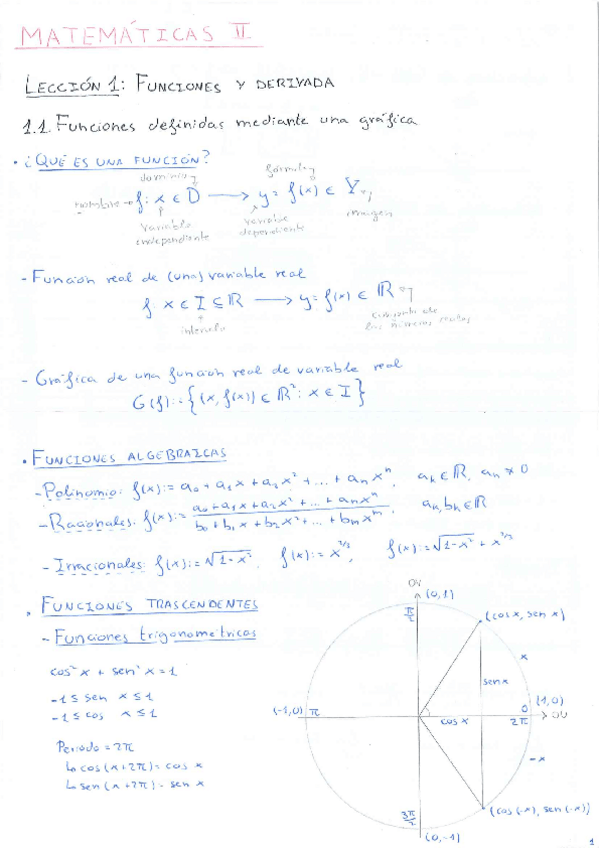 MATEMÁTICAS II
LECCIÓN 1: FUNCIONES Y DERIVADA
1.1. Funciones definidas mediante una gráfica
• ¿QUÉ ES UNA FUNCIÓN?
dominio fórmula
nombre → f: x ∈ D → y = f(x) ∈ Y
imagen
variable independiente
variable dependiente
- Función real de (una) variable real
f: x ∈ I ⊆ ℝ → y = f(x) ∈ ℝ
intervalo
conjunto de
los números reales
- Gráfica de una función real de variable real
G(f) := {(x, f(x)) ∈ ℝ²: x ∈ I}
• FUNCIONES ALGEBRAICAS
- Polinomio: f(x) := a₀ + a₁x + a₂x² + ... + aₙxⁿ, aₖ ∈ ℝ, aₙ ≠ 0
- Racionales: f(x) := (a₀ + a₁x + a₂x² + ... + aₙxⁿ) / (b₀ + b₁x + b₂x² + ... + bₘxᵐ), aₖ, bₖ ∈ ℝ
- Irracionales: f(x) := √1-x², f(x) := x^2/3, f(x) := √1-x² + x^2/3
• FUNCIONES TRASCENDENTES
- Funciones trigonométricas
cos² x + sen² x = 1
-1 ≤ sen x ≤ 1
-1 ≤ cos x ≤ 1
Periodo = 2π
↳ cos (x+2π) = cos x
↳ sen (x+2π) = sen x
OY
(0,1)
π/2
(cos x, sen x)
x
sen x
(-1,0) π
cos x
0
2π
(1,0)
-x
3π/2
(cos(-x), sen(-x))
(0,-1)
1